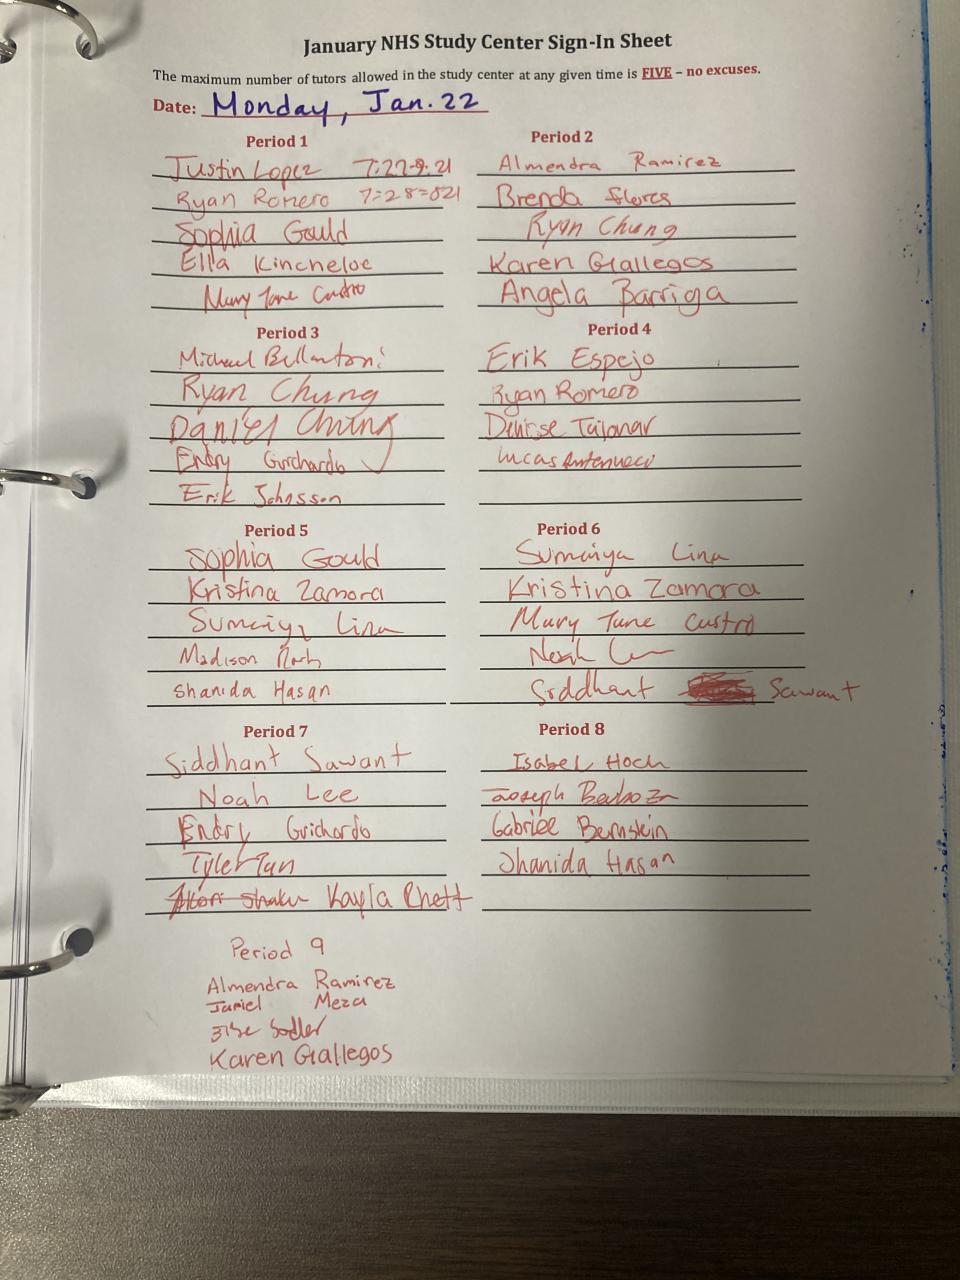 January NHS Study Center Sign-In Sheet
The maximum number of tutors allowed in the study center at any given time is FIVE – no excuses.
Date: Monday, Jan. 22
Period 1
Justin Lopez 7:27-8:21
Ryan Romero 7:28-821
Sophia Gould
Ella Kincheloe
Mary Jane Castro
Period 2
Almendra Ramirez
Brenda flores
Ryan Chung
Karen Gallegos
Angela Barriga
Period 3
Michael Bellantoni
Ryan Chung
Daniel Chung
Endry Guichardo
Erik Johnsson
Period 4
Erik Espejo
Ryan Romero
Denisse
Lucas
Period 5
Sophia Gould
Kristina Zamora
Sumaiya Lina
Madison
Shanida Hasan
Period 6
Sumaiya Lina
Kristina Zamora
Mary Jane Castro
Noah
Siddhant Sawant
Period 7
Siddhant Sawant
Noah Lee
Endry Guichardo
Tyler Tan
Kayla Rhett
Period 8
Isabel Hoch
Joseph
Gabriel Bernstein
Shanida Hasan
Period 9
Almendra Ramirez
Jamiel Meza
Sadler
Karen Gallegos